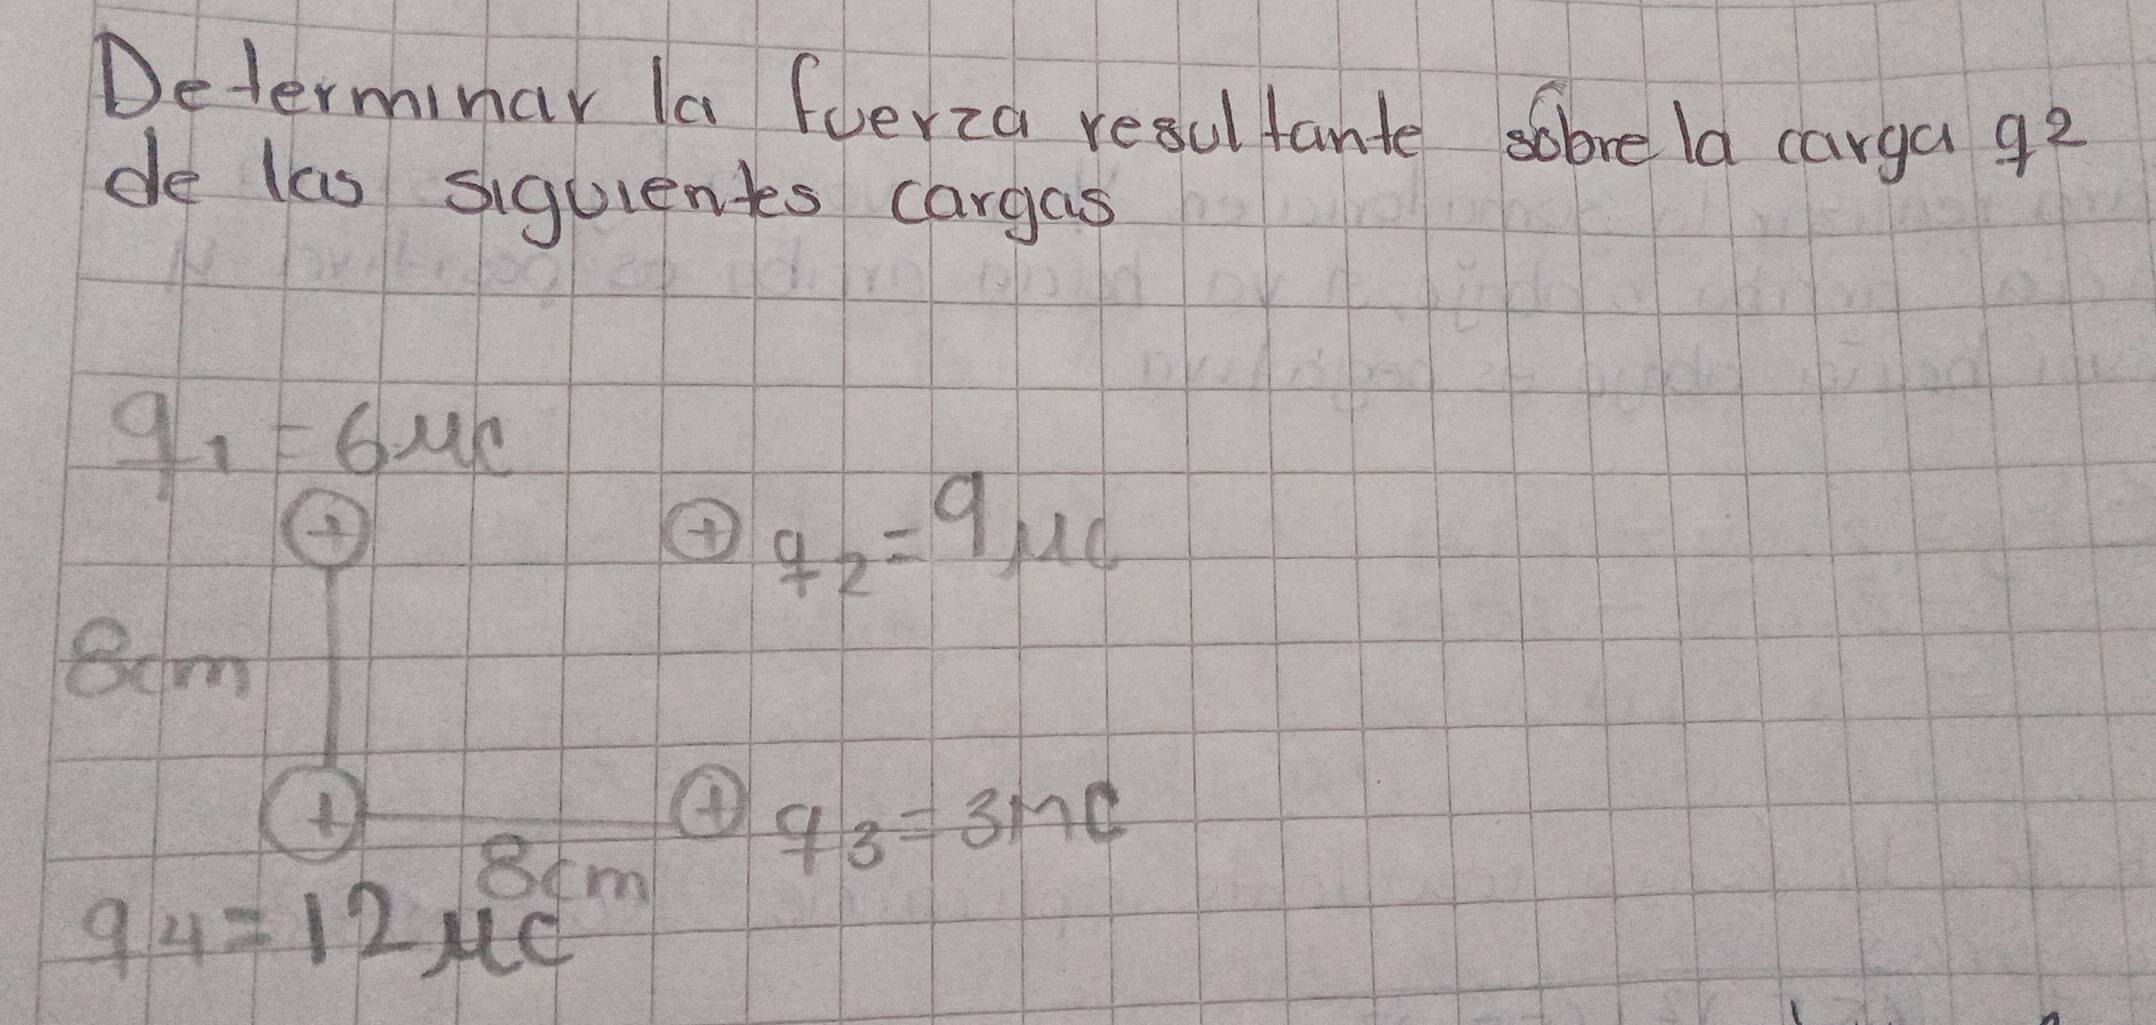 Determinar la fuerza resultante sobre la carga q2
de las siguientes cargas
q1 = 6μC
+
+ q2 = 9μC
8cm
+
+ q3 = 3μC
8cm
q4 = 12μC